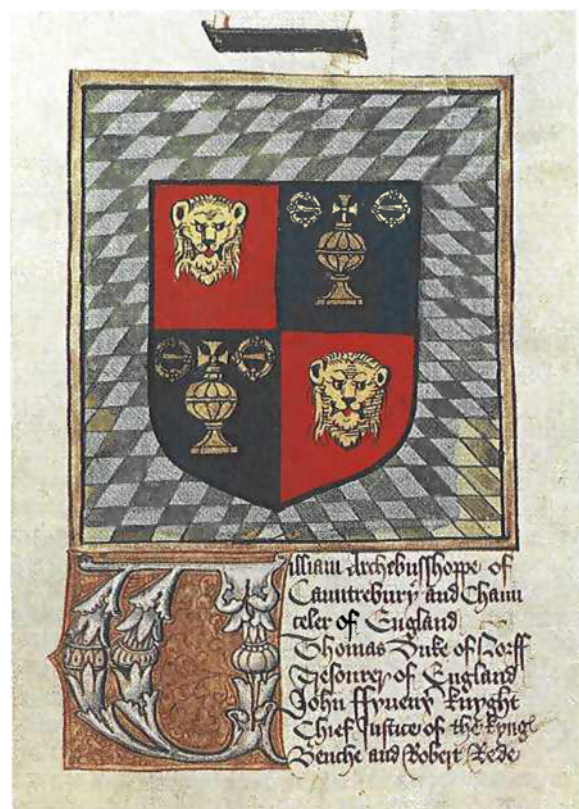 William Archebusshoppe of
Cauntrebury and Chaun
celer of England
Thomas Duke of Norff
Tresourer of England
John ffyneux knyght
Chief Justice of the kyngs
Benche and Robert Rede